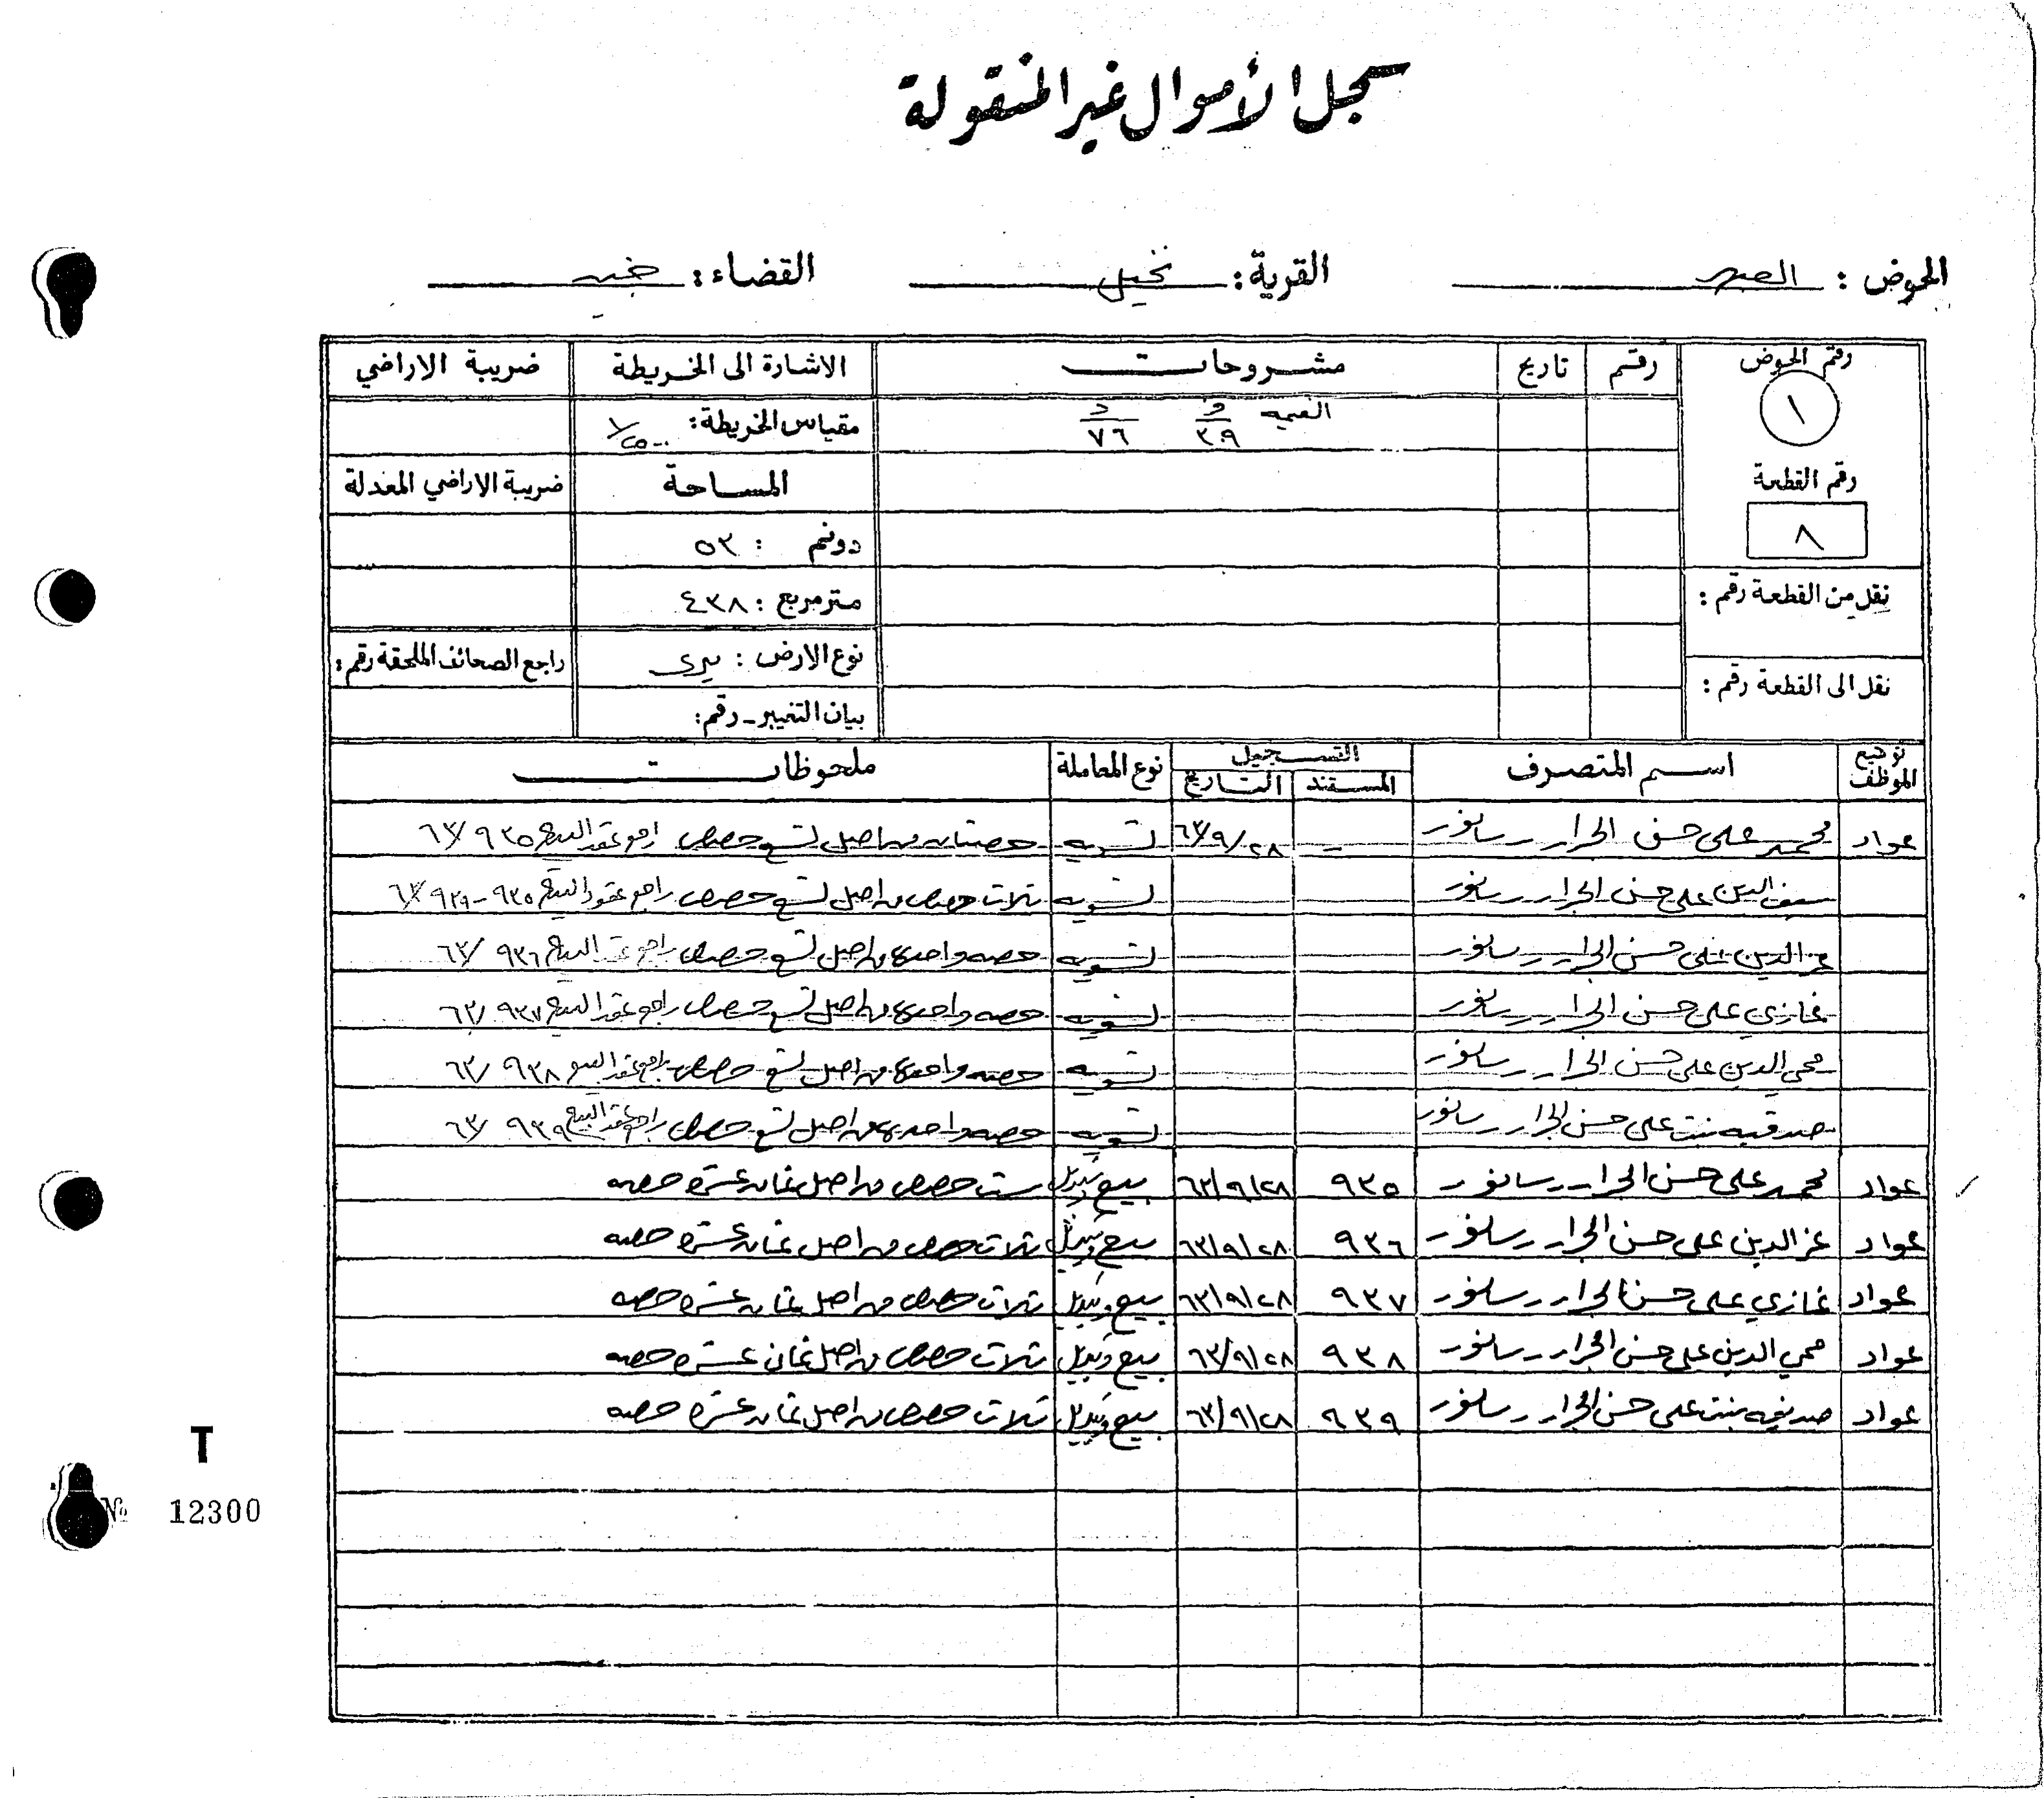 سجل الأموال غير المنقولة
الحوض : القرية : نخيل القضاء : جنين
رقم الحوض رقم تاريخ مشروحات الاشارة الى الخريطة ضريبة الاراضي
١ القيمة د ٣٠٩ د ٧٦ مقياس الخريطة :
رقم القطعة المساحة ضريبة الاراضي المعدلة
٨ دونم : ٥٣
نقل من القطعة رقم : متر مربع : ٤٣٨
نوع الارض : ميري راجع الصحائف الملحقة رقم :
نقل الى القطعة رقم : بيان التغيير - رقم :
توقيع الموظف اسم المتصرف التسجيل نوع المعاملة ملحوظات
المستند التاريخ
عواد محمد علي حسن الجرار - سانور - ٦٣/٩/٢٨ تسوية حصتان من اصل تسع حصص راجع عقد البيع ٩٣٥/٦٣
سيف الدين علي حسن الجرار - سانور تسوية ثلاث حصص من اصل تسع حصص راجع عقود البيع
عز الدين علي حسن الجرار - سانور تسوية حصه واحدة من اصل تسع حصص راجع عقد البيع ٩٣٦/٦٣
غازي علي حسن الجرار - سانور تسوية حصه واحدة من اصل تسع حصص راجع عقد البيع ٩٣٧/٦٣
محي الدين علي حسن الجرار - سانور تسوية حصه واحدة من اصل تسع حصص راجع عقد البيع ٩٣٨/٦٣
صدقيه بنت علي حسن الجرار - سانور تسوية حصه واحدة من اصل تسع حصص راجع عقد البيع ٩٣٩/٦٣
عواد محمد علي حسن الجرار - سانور ٩٣٥ ٦٣/٩/٢٨ بيع وتبديل ست حصص من اصل ثمان عشرة حصه
عواد عز الدين علي حسن الجرار - سانور ٩٣٦ ٦٣/٩/٢٨ بيع وتبديل ثلاث حصص من اصل ثمان عشرة حصه
عواد غازي علي حسن الجرار - سانور ٩٣٧ ٦٣/٩/٢٨ بيع وتبديل ثلاث حصص من اصل ثمان عشرة حصه
عواد محي الدين علي حسن الجرار - سانور ٩٣٨ ٦٣/٩/٢٨ بيع وتبديل ثلاث حصص من اصل ثمان عشرة حصه
عواد صدقيه بنت علي حسن الجرار - سانور ٩٣٩ ٦٣/٩/٢٨ بيع وتبديل ثلاث حصص من اصل ثمان عشرة حصه
T
№ 12300